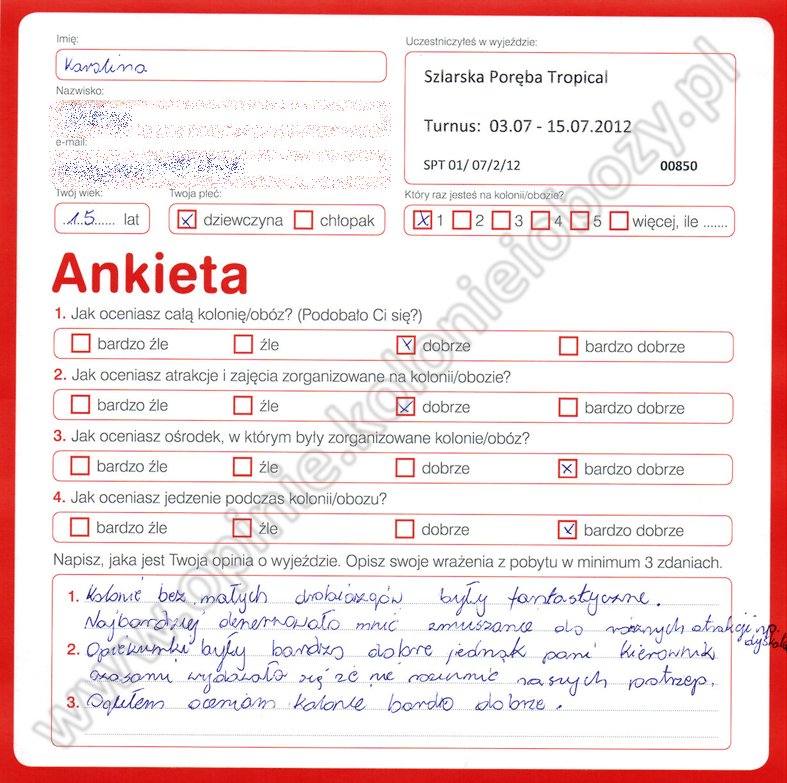 Imię:
Uczestniczyłeś w wyjeździe:
Karolina
Szlarska Poręba Tropical
Nazwisko:
Turnus: 03.07 - 15.07.2012
e-mail:
SPT 01/ 07/2/12 00850
Twój wiek:
Twoja płeć:
Który raz jesteś na kolonii/obozie?
.1.5...... lat
dziewczyna chłopak
1 2 3 4 5 więcej, ile .......
Ankieta
1. Jak oceniasz całą kolonię/obóz? (Podobało Ci się?)
bardzo źle źle dobrze bardzo dobrze
2. Jak oceniasz atrakcje i zajęcia zorganizowane na kolonii/obozie?
bardzo źle źle dobrze bardzo dobrze
3. Jak oceniasz ośrodek, w którym były zorganizowane kolonie/obóz?
bardzo źle źle dobrze bardzo dobrze
4. Jak oceniasz jedzenie podczas kolonii/obozu?
bardzo źle źle dobrze bardzo dobrze
Napisz, jaka jest Twoja opinia o wyjeździe. Opisz swoje wrażenia z pobytu w minimum 3 zdaniach.
1. Kolonie bez małych drobiazgów były fantastyczne.
Najbardziej denerwowało mnie zmuszanie do różnych atrakcji np.
2. Opiekunki były bardzo dobre jednak pani kierownik
czasami wydawało się że nie rozumie naszych potrzep.
3. Ogółem oceniam kolonie bardo dobrze.
www.opinie.kolonieiobozy.pl